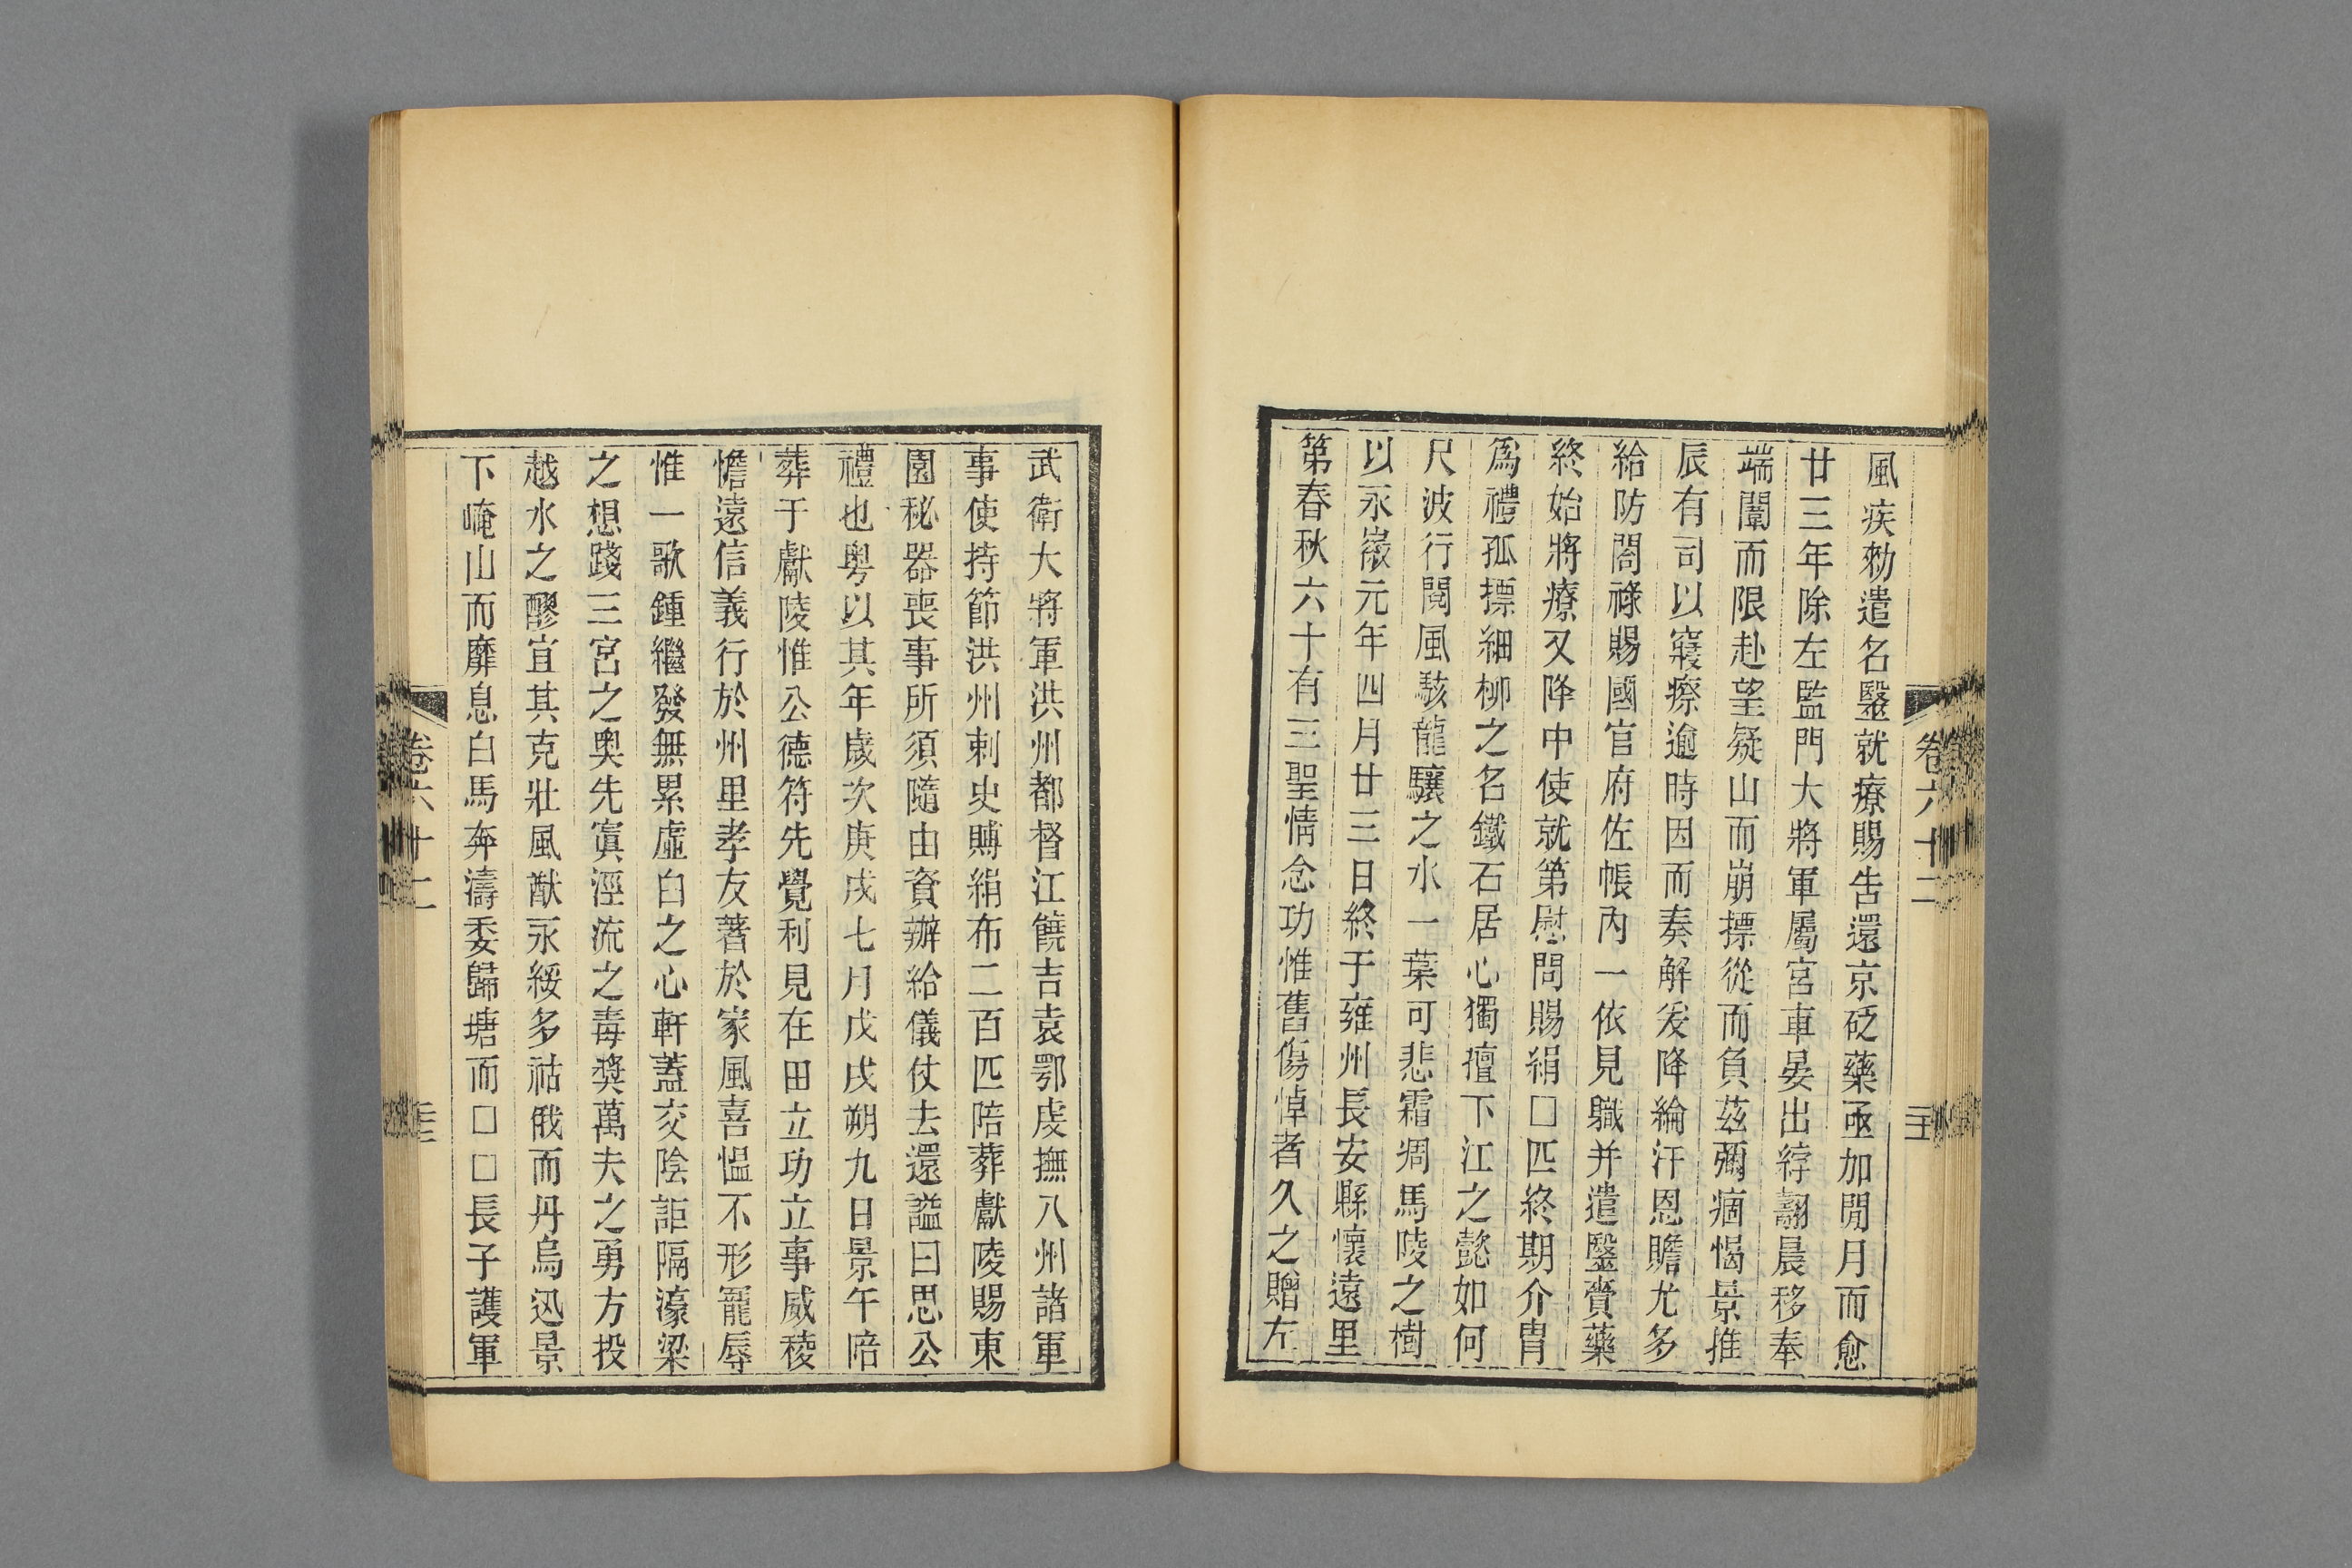 風疾勑遣名醫就療賜告還京砭藥亟加閒月而愈
廿三年除左監門大將軍屬宮車晏出綍翿晨移奉
端闈而限赴望嶷山而崩摽從而負茲彌痼惕景推
辰有司以寢瘵逾時因而奏解爰降綸汗恩贍尤多
給防閤祿賜國官府佐帳內一依見職并遣醫賫藥
終始將療又降中使就第慰問賜絹□匹終期介胄
爲禮孤摽細柳之名鐵石居心獨擅下江之懿如何
尺波行閱風駭龍驤之水一葉可悲霜凋馬陵之樹
以永嶶元年四月廿三日終于雍州長安縣懷遠里
第春秋六十有三聖情念功惟舊傷悼者久之贈左
卷六十二
武衛大將軍洪州都督江饒吉袁鄂虔撫八州諸軍
事使持節洪州刺史賻絹布二百匹陪葬獻陵賜東
園秘器喪事所須隨由資辦給儀仗去還謚曰思公
禮也粤以其年歲次庚戌七月戊戌朔九日景午陪
葬于獻陵惟公德符先覺利見在田立功立事威稜
憺遠信義行於州里孝友著於家風喜愠不形寵辱
惟一歌鍾繼發無累虛白之心軒蓋交陰詎隔濠梁
之想踐三宮之奧先寘涇流之毒奬萬夫之勇方投
越水之醪宜其克壯風猷永綏多祜俄而丹烏迅景
下崦山而靡息白馬奔濤委歸塘而□□長子護軍
卷六十二